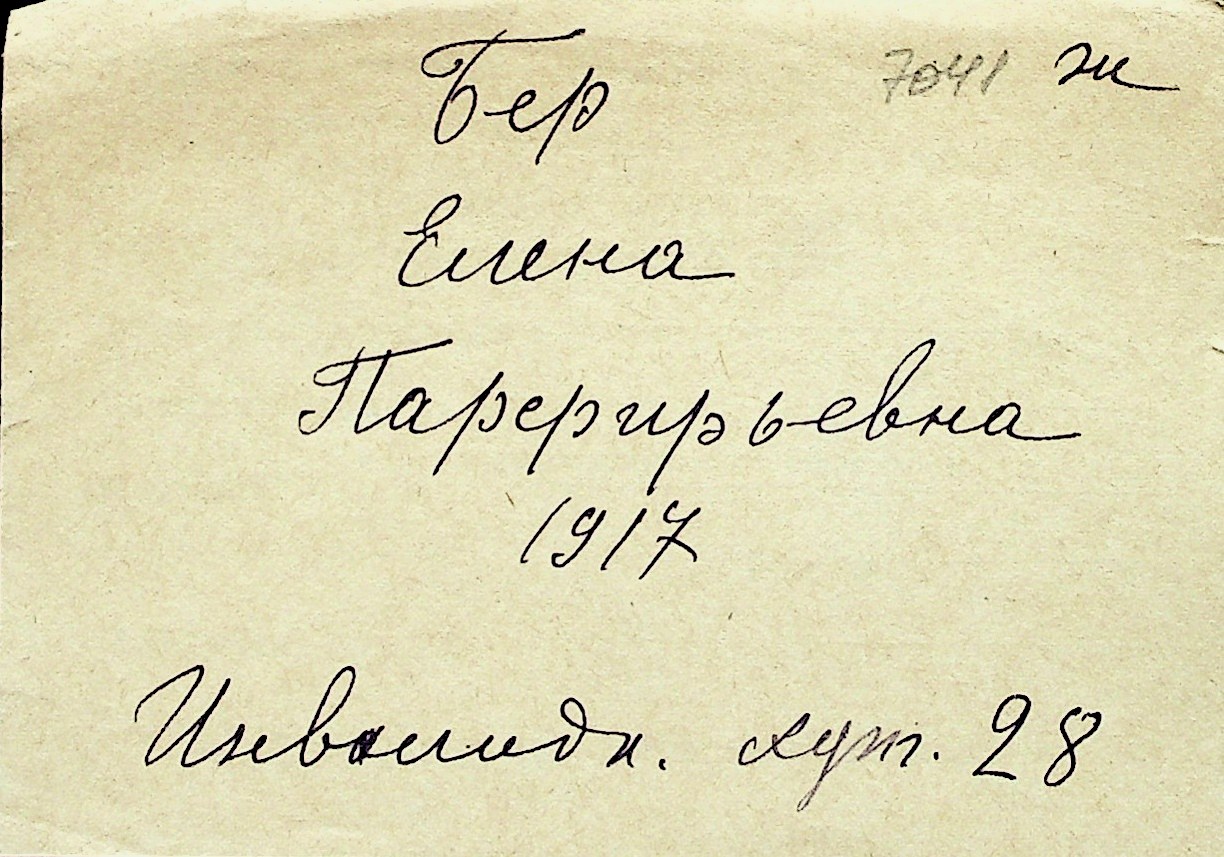 7041 ж
Бер
Елена
Парфирьевна
1917
Инвалидн. хут. 28